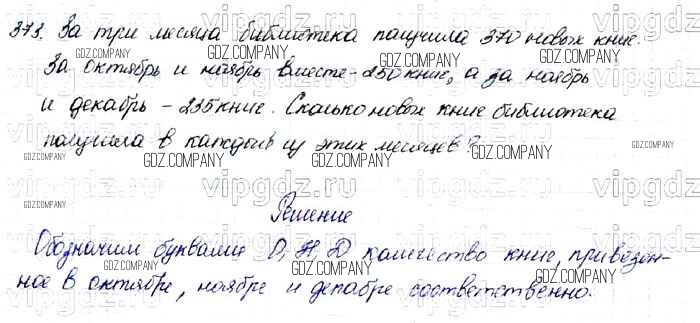 373. За три месяца библиотека получила 370 новых книг.
За октябрь и ноябрь вместе - 250 книг, а за ноябрь
и декабрь - 235 книг. Сколько новых книг библиотека
получила в каждый из этих месяцев?
Решение
Обозначим буквами О, Н, D количество книг, привезён-
ное в октябре, ноябре и декабре соответственно.